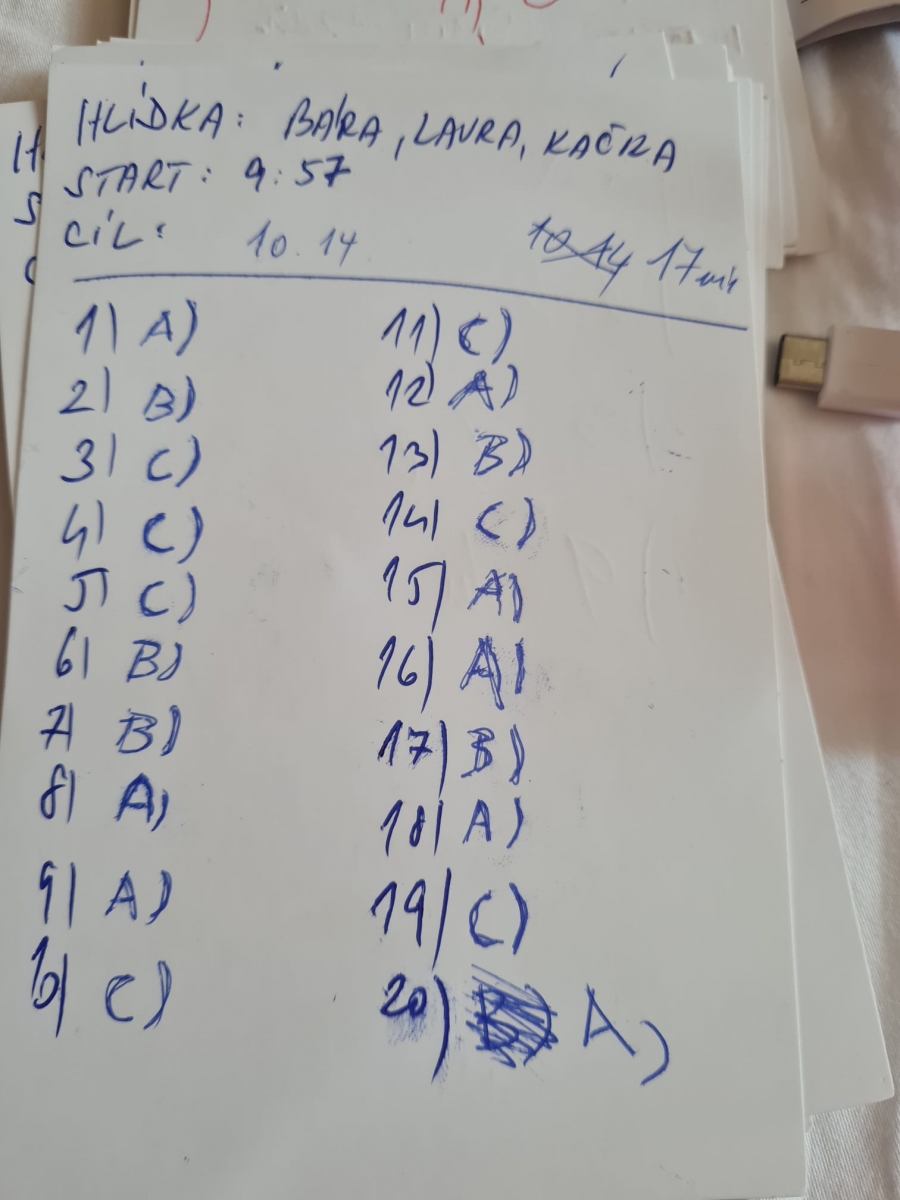 HLÍDKA: BÁRA, LAURA, KAČKA
START: 9:57
CÍL: 10.14 10.14 17 min
1) A)
2) B)
3) C)
4) C)
5) C)
6) B)
7) B)
8) A)
9) A)
10) C)
11) C)
12) A)
13) B)
14) C)
15) A)
16) A)
17) B)
18) A)
19) C)
20) B) A)
H
S
C